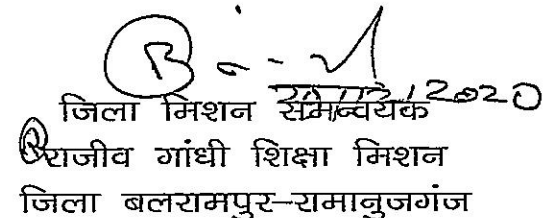 जिला मिशन समन्वयक
राजीव गांधी शिक्षा मिशन
जिला बलरामपुर-रामानुजगंज